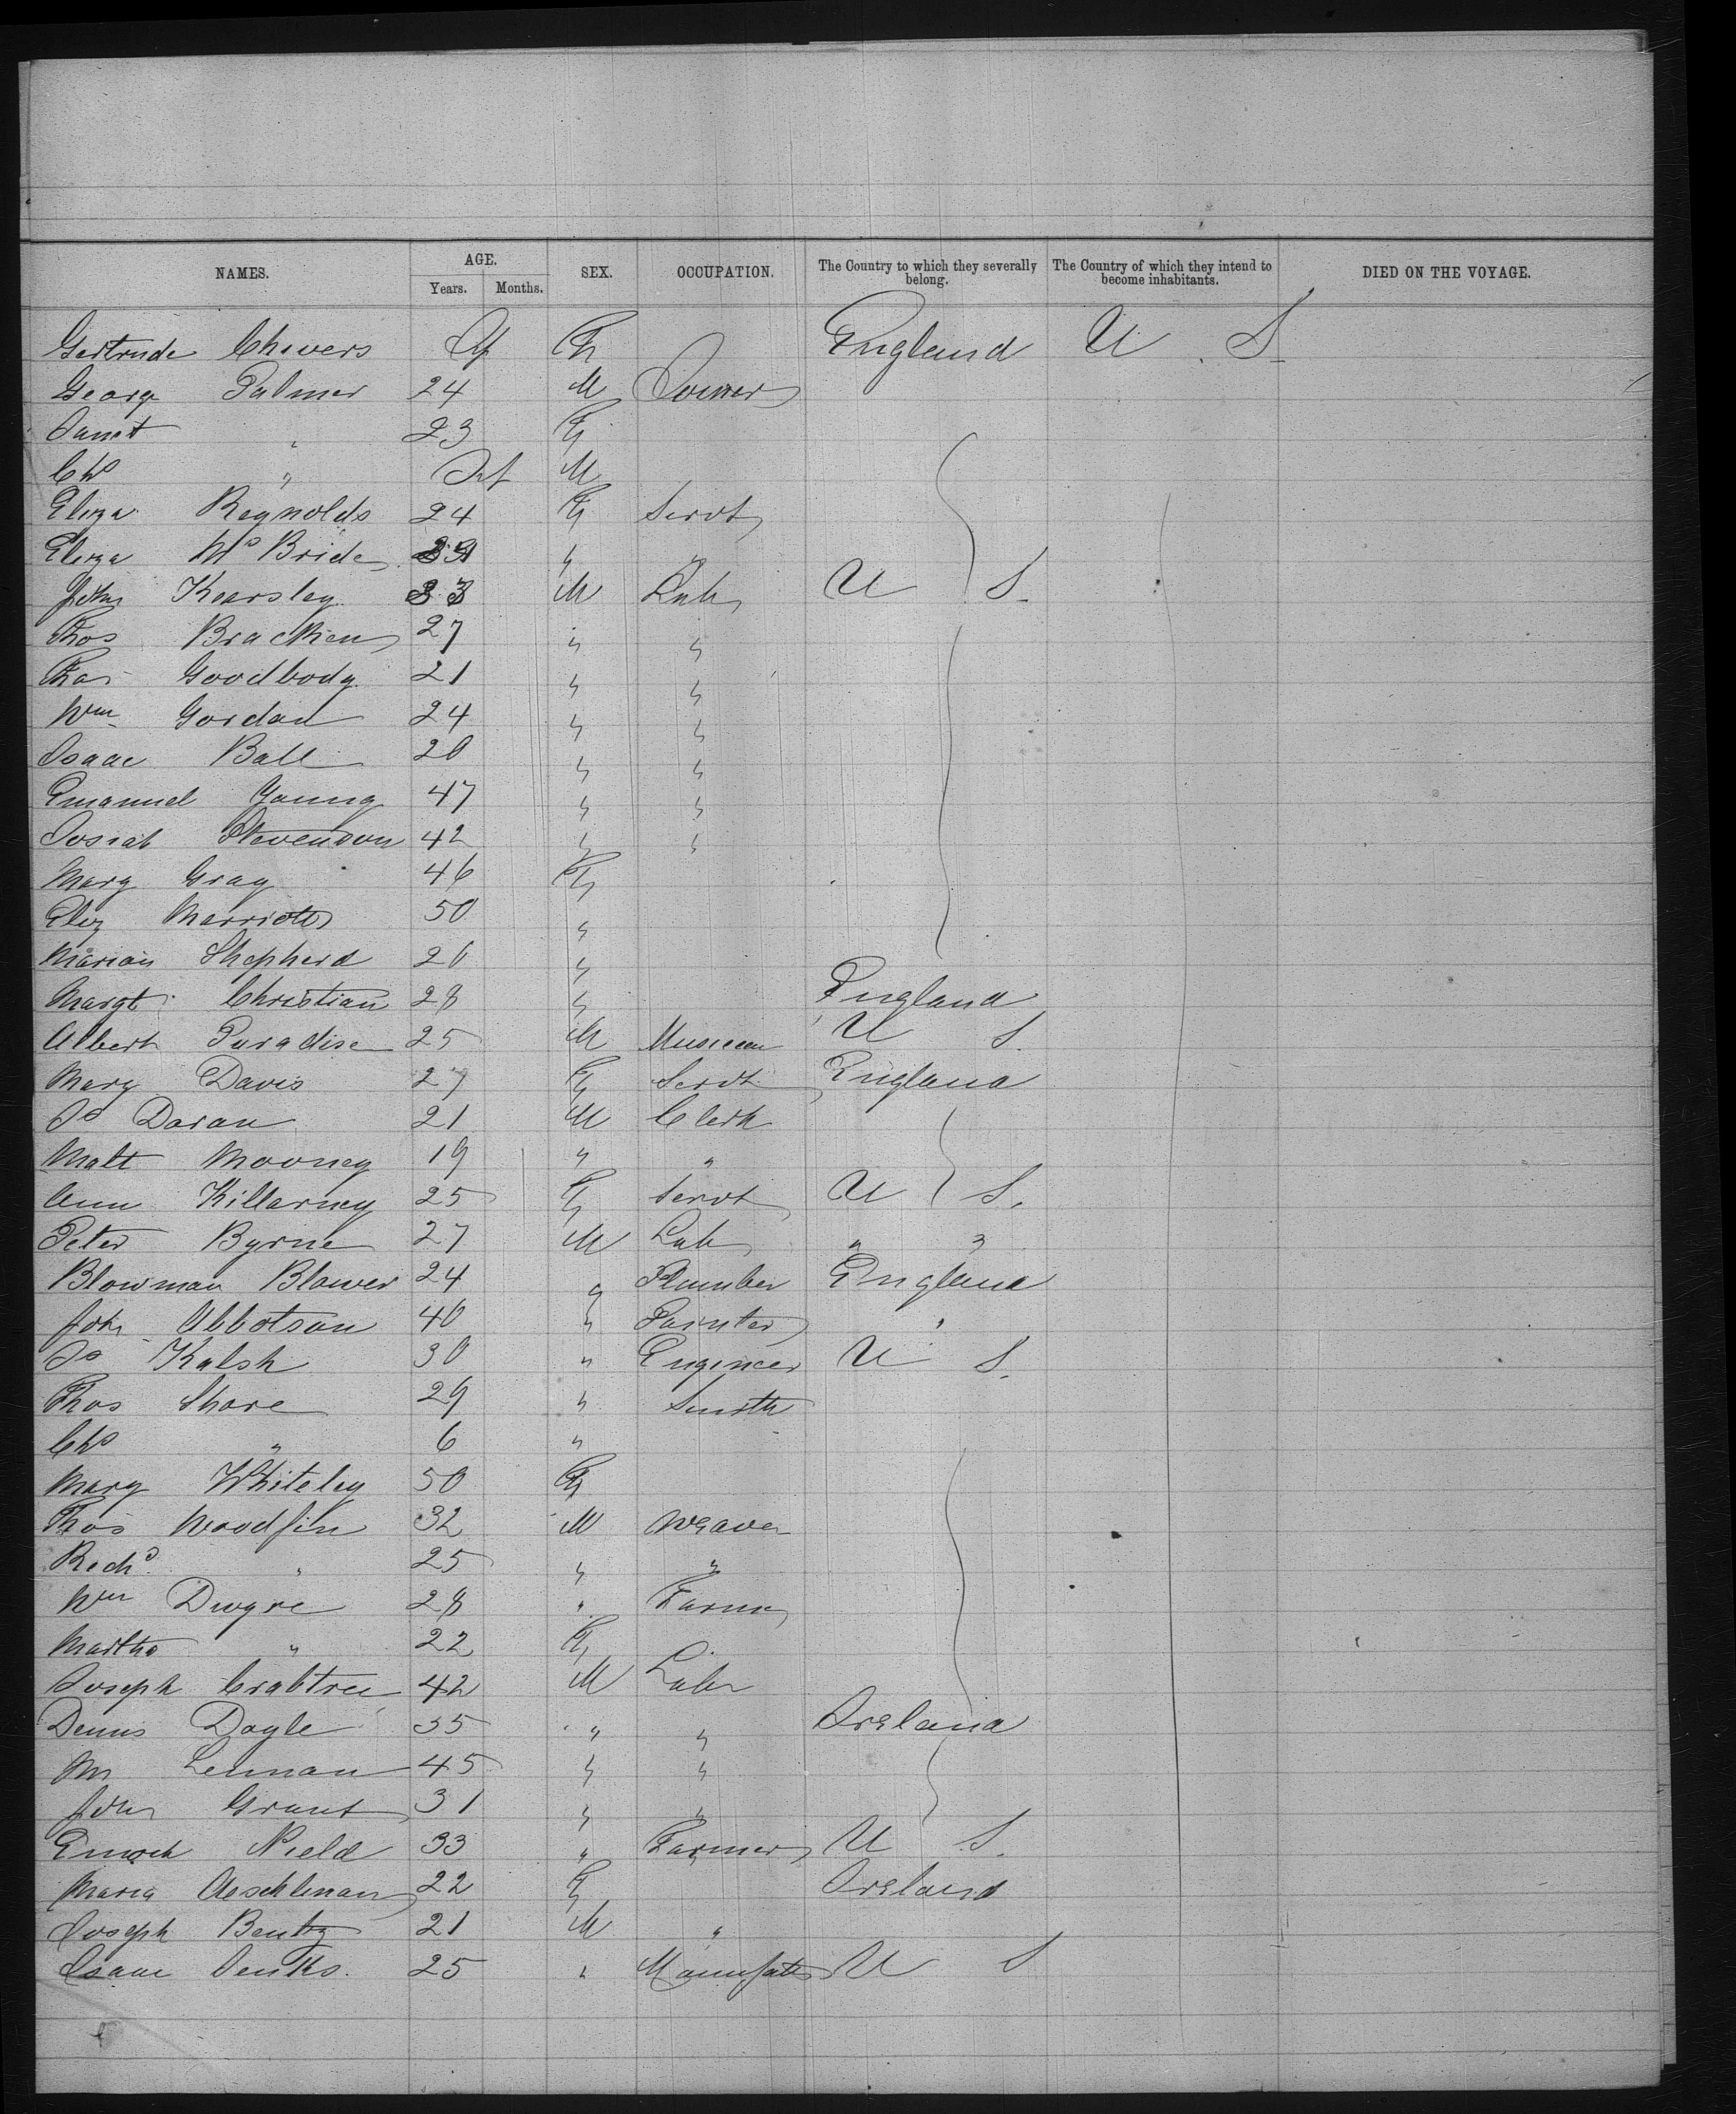 NAMES. AGE. SEX. OCCUPATION. The Country to which they severally belong. The Country of which they intend to become inhabitants. DIED ON THE VOYAGE.
Years. Months.
Gertrude Chevers F England U S
George Palmer 24 M Joiner
Janet " 23 F
Chs " Inf M
Eliza Reynolds 24 F Servt
Eliza McBride " "
John Kearsley 33 M Lab U S
Thos Bracken 27 " "
Thos Goodbody 21 " "
Wm Gordan 24 " "
Isaac Ball 20 " "
Emanuel Young 47 " "
Josiah Stevenson 42 " "
Mary Gray 46 F
Eliz Marriott 50 "
Marian Shepherd 20 "
Margt Christian 28 " England
Albert Paradise 25 M Musician U S
Mary Davis 27 F Servt England
Js Doran 21 M Clerk
Matt Mooney 19 " "
Ann Killarney 25 F Servt U S.
Peter Byrne 27 M Lab " "
Blowman Blower 24 " Plumber England
John Abbotson 40 " Painter "
Js Kalsh 30 " Engineer U S.
Thos Shore 29 " Smith
Chs " 6 "
Mary Whiteley 50 F
Thos Woodfin 32 M Weaver
Richd " 25 " "
Wm Dwyre 28 " Farmr
Martha " 22 F
Joseph Crabtree 42 M Labr
Dennis Doyle 35 " " Ireland
Wm Lennan 45 " "
John Grant 31 " "
Enoch Nield 33 " Farmer U S.
Maria Aeschlman 22 F Ireland
Joseph Bentz 21 M "
Isaac Jenks. 25 " Manufatr U S